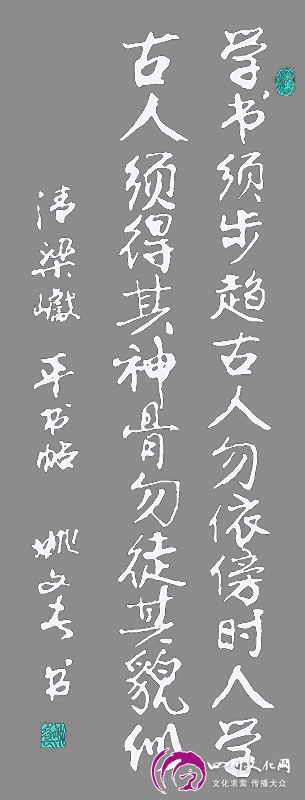 学书须步趋古人勿依傍时人学
古人须得其神骨勿徒其貌似
清梁巘 平书帖 姚文春书
四川文化网
文化求索 传播大众